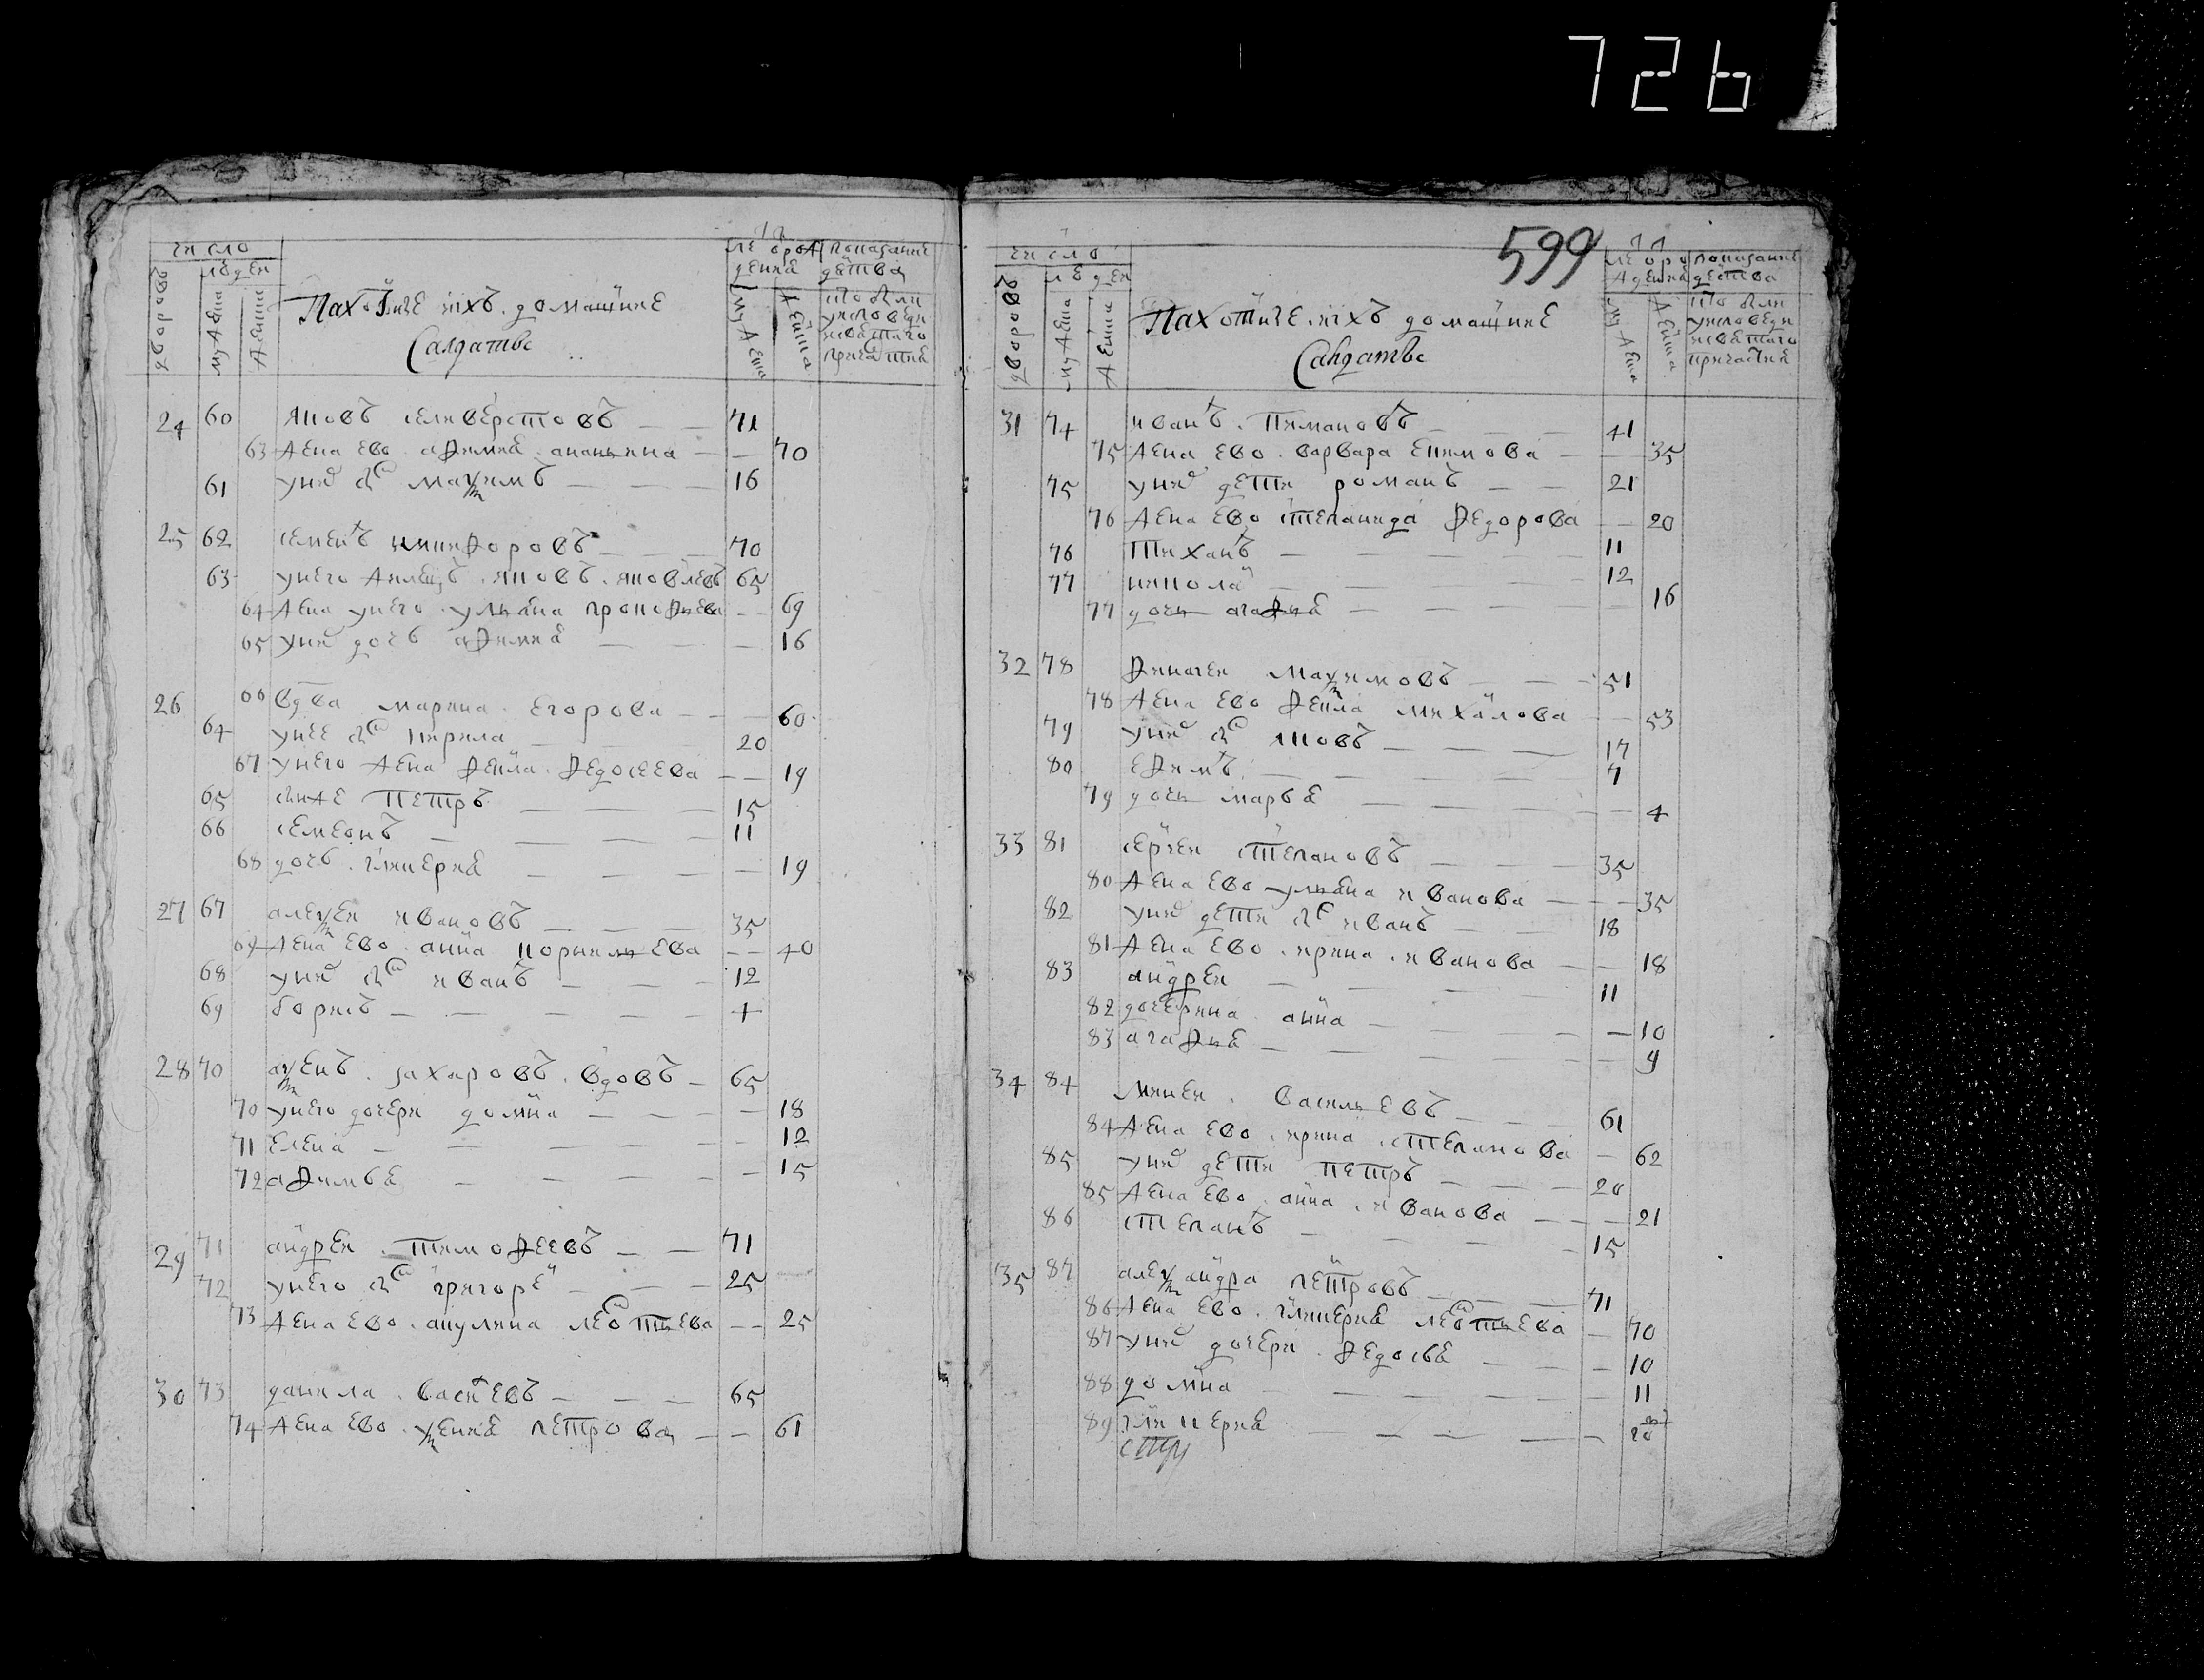 726
число
людей
дворовъ
мужеска
женска
Пахотные ихъ домашние
Салдатъе
лѣ о рож
дения
мужеска
женска
показание
действа
кто были
у исповеди
и святаго
причастия
24 60 яковъ селиверстовъ — — 71
63 жена ево афимья ананьина — — 70
61 у них сн максимъ — — — 16
25 62 семенъ никифоровъ — — — 70
63 у него жилецъ яковъ яковлевъ 65
64 жена у него ульяна прокофиева — — 69
65 у них дочь афимия — — — 16
26 66 вдва марина егорова — — — 60
64 у нее сн кирила — — — 20
67 у него жена фекла федосеева — — 19
65 сынже петръ — — — 15
66 семеонъ — — — 11
68 дочь гликерия — — — 19
27 67 алексеи ивановъ — — — 35
69 жена ево анна корнильева — — 40
68 у них сн иванъ — — — 12
69 борисъ — — — — 4
28 70 аксенъ захаровъ вдовъ — 65
70 у него дочери домна — — — 18
71 елена — — — — 12
72 афимья — — — — 15
29 71 андреи тимофеевъ — — 71
72 у него сн григореи — — — 25
73 жена ево акулина леотьева — — 25
30 73 данила васивъ — — — 65
74 жена ево ксения петрова — — 61
599
число
людеи
дворовъ
мужеска
женска
Пахотные ихъ домашние
Салдатъе
лѣ о ро
ждения
мужеска
женска
показание
действа
кто были
у исповеди
и святаго
причастия
31 74 иванъ пимановъ — — — 41
75 жена ево варвара екимова — — 35
75 у них дети романъ — — 21
76 жена ево степанида федорова — — 20
76 тиханъ — — — — 11
77 никола — — — — 12
77 дочь агафия — — — — 16
32 78 фикатеи максимовъ — — — 51
78 жена ево фекла михаилова — — 53
79 у них сн яковъ — — — 17
80 ефимъ — — — — 7
79 дочь марья — — — — 4
33 81 сергеи степановъ — — — 35
80 жена ево ульяна иванова — — — 35
82 у них дети сн иванъ — — 18
81 жена ево ирина иванова — — 18
83 андреи — — — — 11
82 дочерина анна — — — — 10
83 агафия — — — — 9
34 84 микеи васильевъ — — — 61
84 жена ево ирина степанова — 62
85 у них дети петръ — — — 20
85 жена ево анна иванова — — — 21
86 степанъ — — — — 15
35 87 александра петровъ — — — 71
86 жена ево гликерия леотьева — 70
87 у них дочери федосья — — — 10
88 домна — — — — 11
89 гликерия — — — —